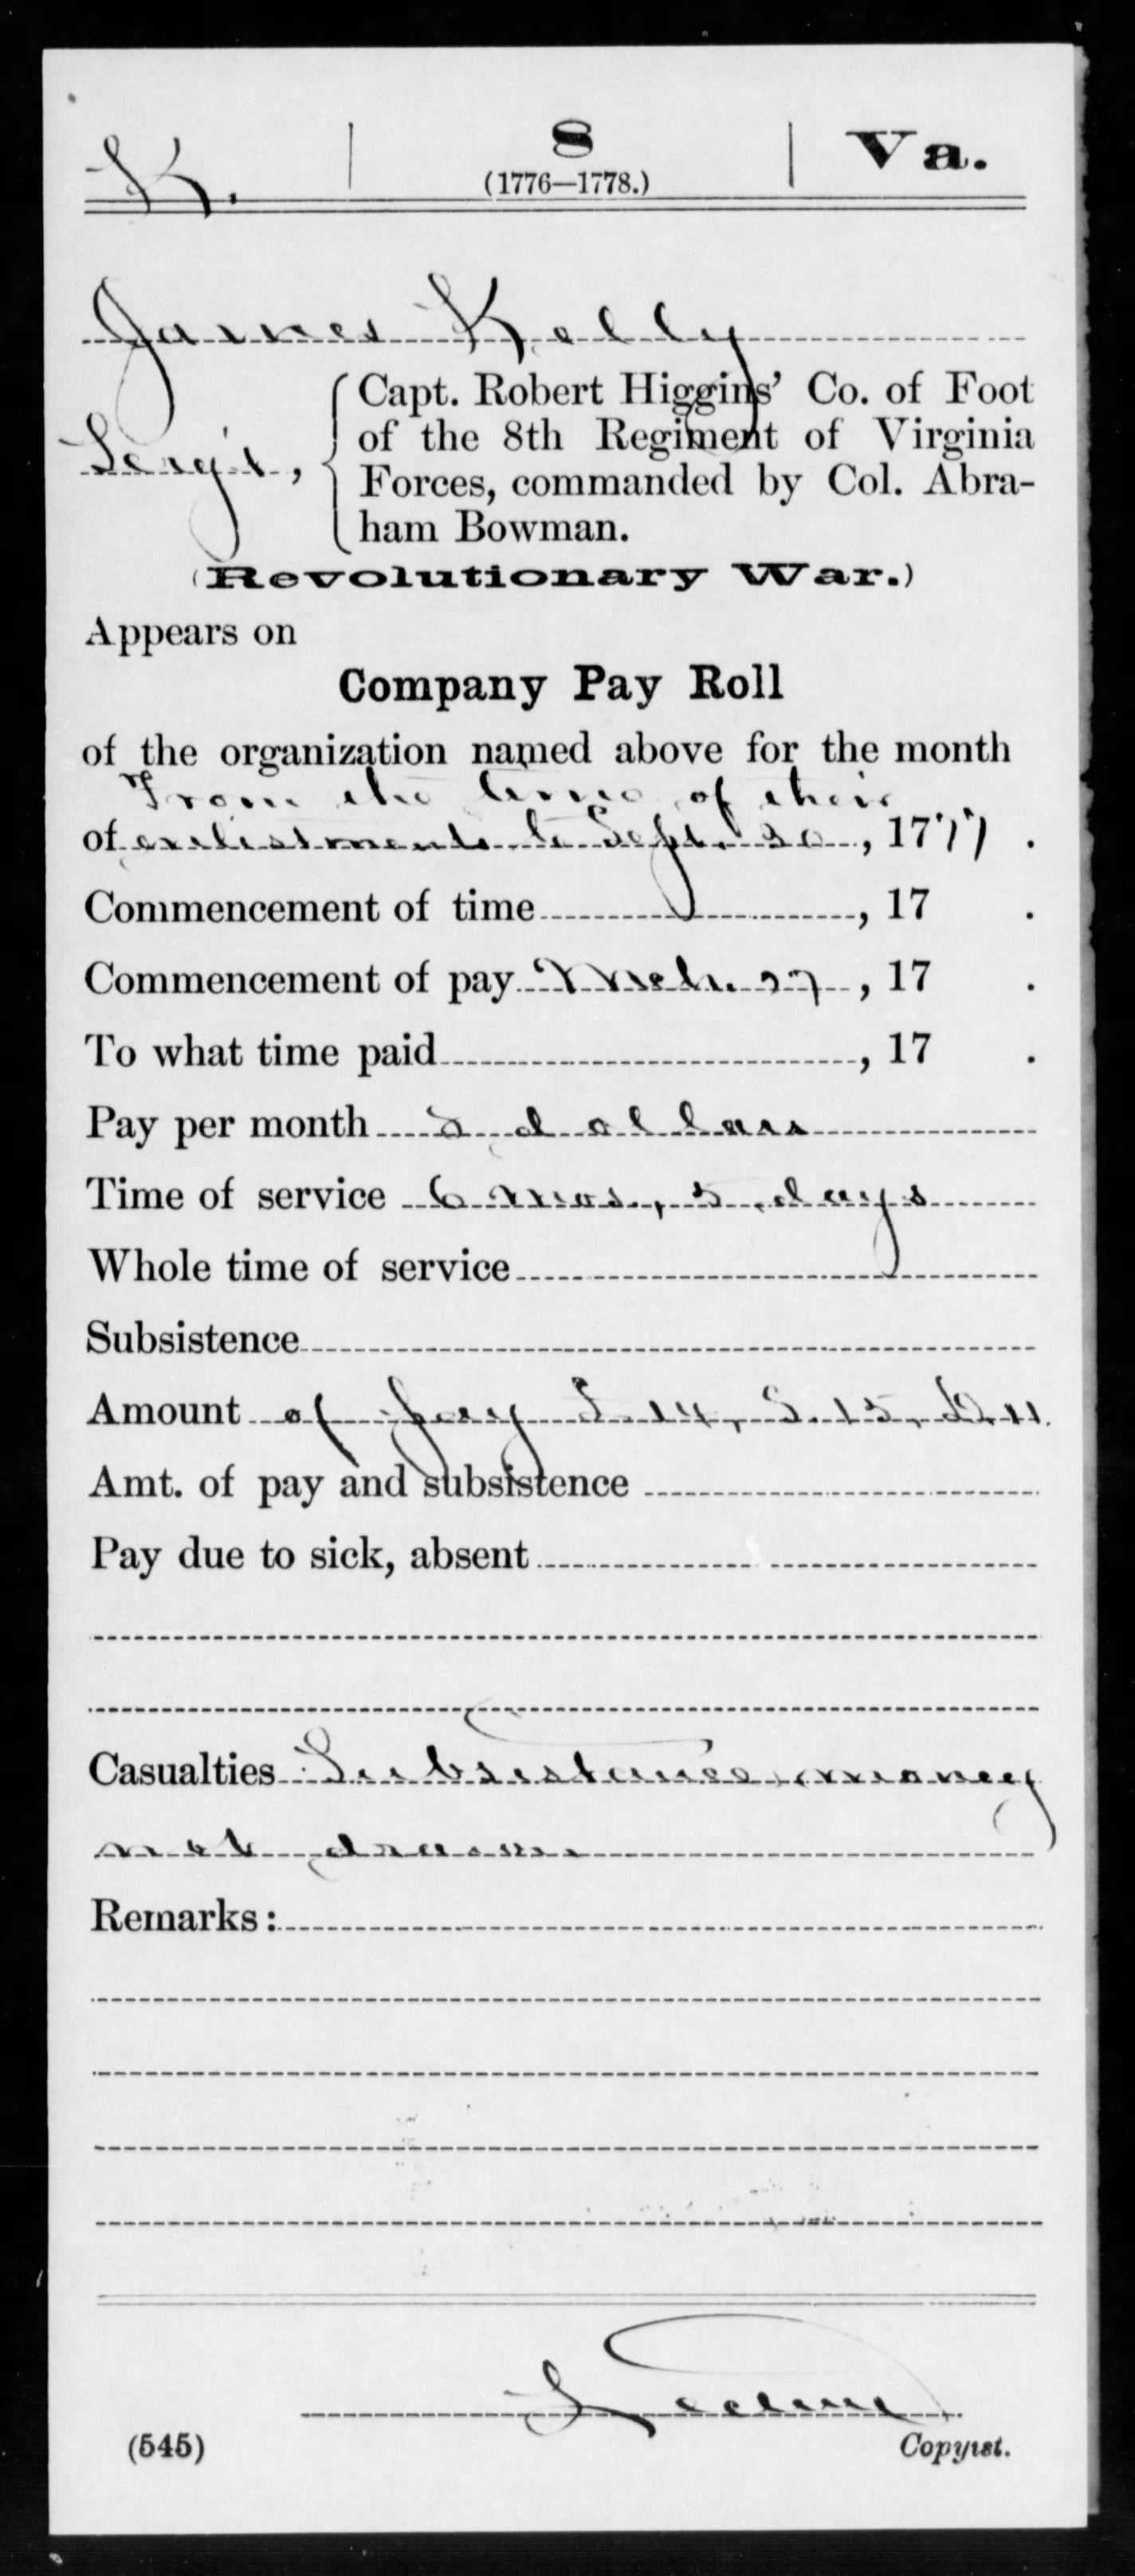 K. 8 Va.
(1776—1778.)
James Kelly
Serg't, Capt. Robert Higgins' Co. of Foot
of the 8th Regiment of Virginia
Forces, commanded by Col. Abra-
ham Bowman.
(Revolutionary War.)
Appears on
Company Pay Roll
of the organization named above for the month
From the time of their
of enlistment to Sept. 30, 1777.
Commencement of time , 17 .
Commencement of pay Mch. 27, 17 .
To what time paid , 17 .
Pay per month 8 dollars
Time of service 6 mos., 5 days
Whole time of service
Subsistence
Amount of pay L. 14, S. 15, D. 11.
Amt. of pay and subsistence
Pay due to sick, absent
Casualties Subsistance money
not drawn
Remarks:
(545) Copyist.